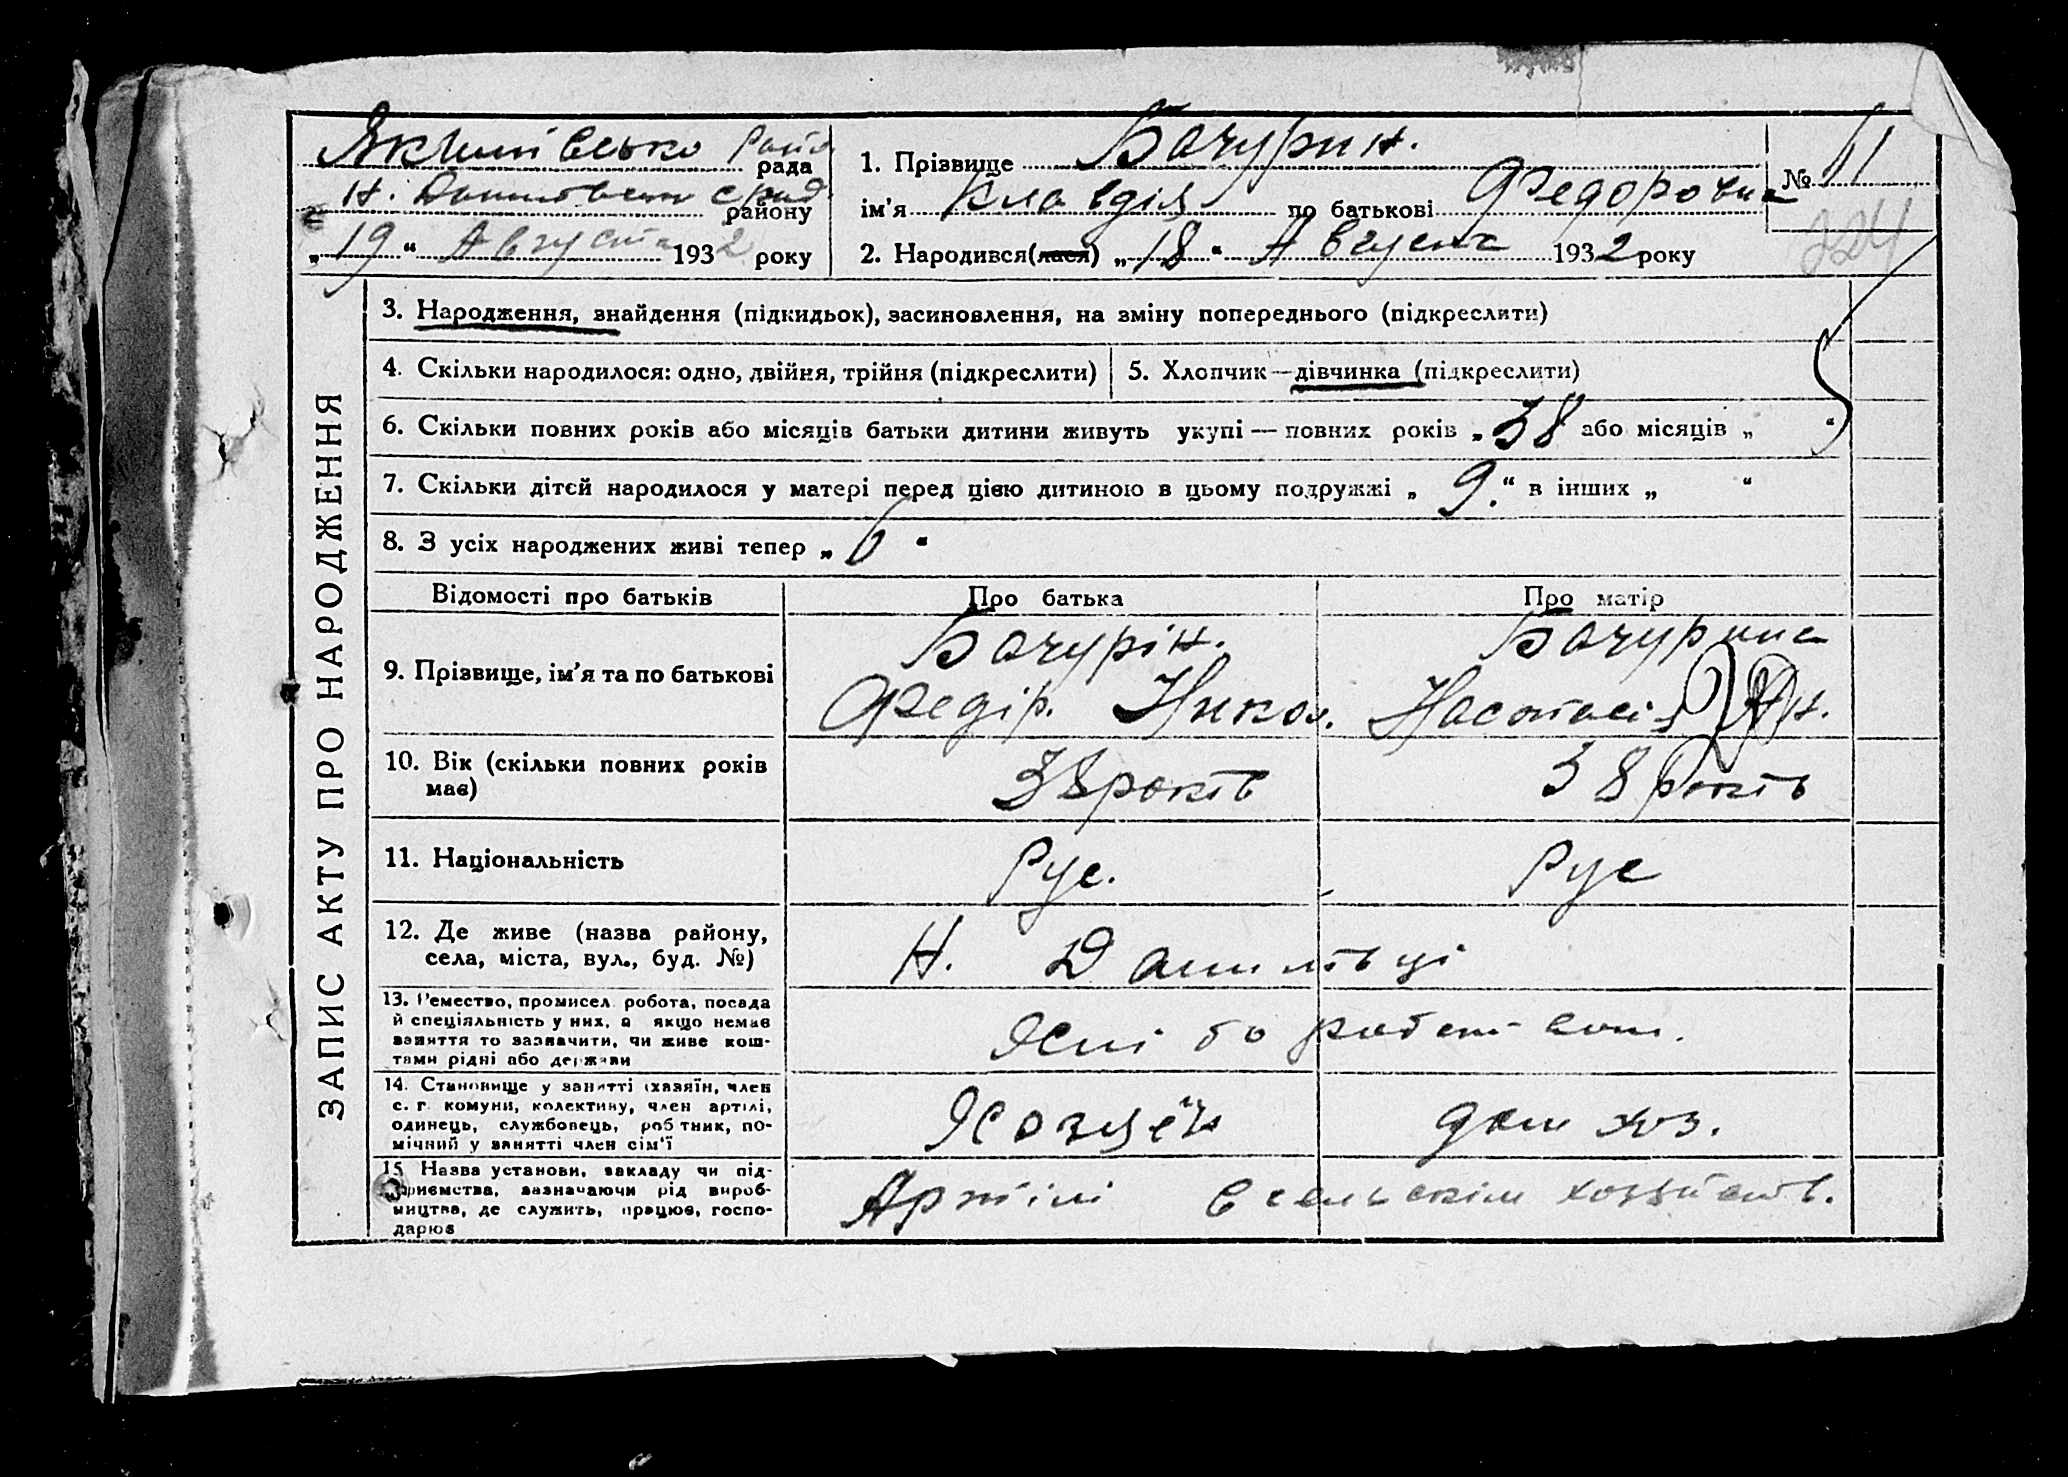 ЗАПИС АКТУ ПРО НАРОДЖЕННЯ
Якимівсько рада
Н. Данилівськ с рад району
„19“ Августа 1932 року
1. Прізвище Бачурин.
ім’я Клавдія по батькові Федоровна
№ 11
224
2. Народився(лася) „18“ Августа 1932 року
3. Народження, знайдення (підкидьок), засиновлення, на зміну попереднього (підкреслити)
4. Скільки народилося: одно, двійня, трійня (підкреслити)
5. Хлопчик—дівчинка (підкреслити)
6. Скільки повних років або місяців батьки дитини живуть укупі — повних років „38 або місяців „ “
7. Скільки дітей народилося у матері перед цією дитиною в цьому подружжі „9.“ в інших „ “
8. З усіх народжених живі тепер „6“
Відомості про батьків Про батька Про матір
9. Прізвище, ім’я та по батькові
Бачурін. Бачурина
Федір. Никол. Настасія Ян.
10. Вік (скільки повних років має)
38 років 38 років
11. Національність
Рус. Рус
12. Де живе (назва району, села, міста, вул., буд. №)
Н. Данилівці
13. Ремество, промисел робота, посада й спеціяльність у них, а якщо немає заняття то зазначити, чи живе коштами рідні або держави
14. Становище у занятті (хазяїн, член с. г. комуни, колективу, член артілі, одинець, службовець, робтник, помічний у занятті член сім’ї
Хозяён дом хоз.
15 Назва установи, закладу чи підприємства, зазначаючи рід виробництва, де служить, працює, господарює
Артілі в сельскім хозяйств.